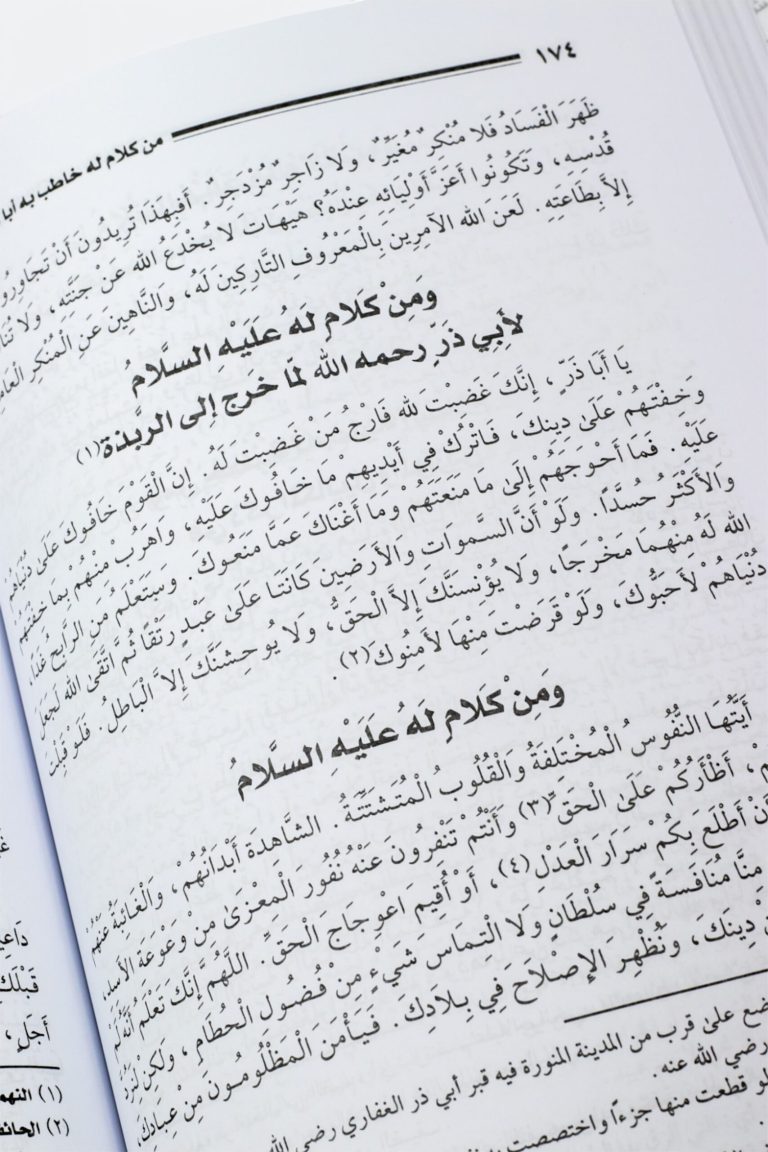 ١٧٤
من كلام له خاطب به ابا
ظَهَرَ الْفَسَادُ فَلَا مُنْكِرٌ مُغَيِّرٌ، وَلَا زَاجِرٌ مُزْدَجِرٌ. أَفَبِهَذَا تُرِيدُونَ أَنْ تُجَاوِرُو
قُدْسِهِ، وَتَكُونُوا أَعَزَّ أَوْلِيَائِهِ عِنْدَهُ؟ هَيْهَاتَ لَا يُخْدَعُ اللهُ عَنْ جَنَّتِهِ، وَلَا
إِلاَّ بِطَاعَتِهِ. لَعَنَ اللهُ الآمِرِينَ بِالْمَعْرُوفِ التَّارِكِينَ لَهُ، وَالنَّاهِينَ عَنِ الْمُنْكَرِ
وَمِنْ كَلَامٍ لَهُ عَلَيْهِ السَّلَامُ
لأَبِي ذَرٍّ رحمه الله لمّا خَرَج إلى الربَّذة(١)
يَا أَبَا ذَرٍّ، إِنَّكَ غَضِبْتَ لله فَارْجُ مَنْ غَضِبْتَ لَهُ. إِنَّ الْقَوْمَ خَافُوكَ عَلَىٰ دُنْيَاهُمْ
وَخِفْتَهُمْ عَلَىٰ دِينِكَ، فَاتْرُكْ فِي أَيْدِيهِمْ مَا خَافُوكَ عَلَيْهِ، وَاهْرُبْ مِنْهُمْ بِمَا خِفْتَهُمْ
عَلَيْهِ. فَمَا أَحْوَجَهُمْ إِلَىٰ مَا مَنَعْتَهُمْ وَمَا أَغْنَاكَ عَمَّا مَنَعُوكَ. وَسَتَعْلَمُ مَنِ الرَّابِحُ غَدًا،
وَالأَكْثَرُ حُسَّدًا. وَلَوْ أَنَّ السَّموَاتِ وَالأَرَضِينَ كَانَتَا عَلَىٰ عَبْدٍ رَتْقًا ثُمَّ اتَّقَى الله لَجَعَلَ
اللهُ لَهُ مِنْهُمَا مَخْرَجًا، وَلَا يُؤْنِسَنَّكَ إِلاَّ الْحَقُّ، وَلَا يُوحِشَنَّكَ إِلاَّ الْبَاطِلُ. فَلَوْ قَبِلْتَ
دُنْيَاهُمْ لأَحَبُّوكَ، وَلَوْ قَرَضْتَ مِنْهَا لأَمِنُوكَ(٢).
وَمِنْ كَلَامٍ لَهُ عَلَيْهِ السَّلَامُ
أَيَّتُهَا النُّفُوسُ الْمُخْتَلِفَةُ وَالْقُلُوبُ الْمُتَشَتِّتَةُ. الشَّاهِدَةُ أَبْدَانُهُمْ، وَالْغَائِبَةُ عَنْهُمْ
أَظْأَرُكُمْ عَلَىٰ الْحَقِّ(٣) وَأَنْتُمْ تَنْفِرُونَ عَنْهُ نُفُورَ الْمِعْزَىٰ مِنْ وَعْوَعَةِ الأَسَدِ،
أَنْ أَطْلَعَ بِكُمْ سَرَارَ الْعَدْلِ(٤)، أَوْ أُقِيمَ اعْوِجَاجَ الْحَقِّ. اللَّهُمَّ إِنَّكَ تَعْلَمُ أَنَّهُ لَمْ
مِنَّا مُنَافَسَةً فِي سُلْطَانٍ وَلَا الْتِمَاسَ شَيْءٍ مِنْ فُضُولِ الْحُطَامِ، وَلَكِنْ لِنَرُدَّ
دِينِكَ، وَنُظْهِرَ الإِصْلَاحَ فِي بِلَادِكَ. فَيَأْمَنَ الْمَظْلُومُونَ مِنْ عِبَادِكَ،
ضع علىٰ قرب من المدينة المنورة فيه قبر أبي ذر الغفاري رضي الله
رضي الله عنه.
لو قطعت منها جزءاً واختصصت
قَبْلَكَ
أَجَلٍ،
(١)
(٢)